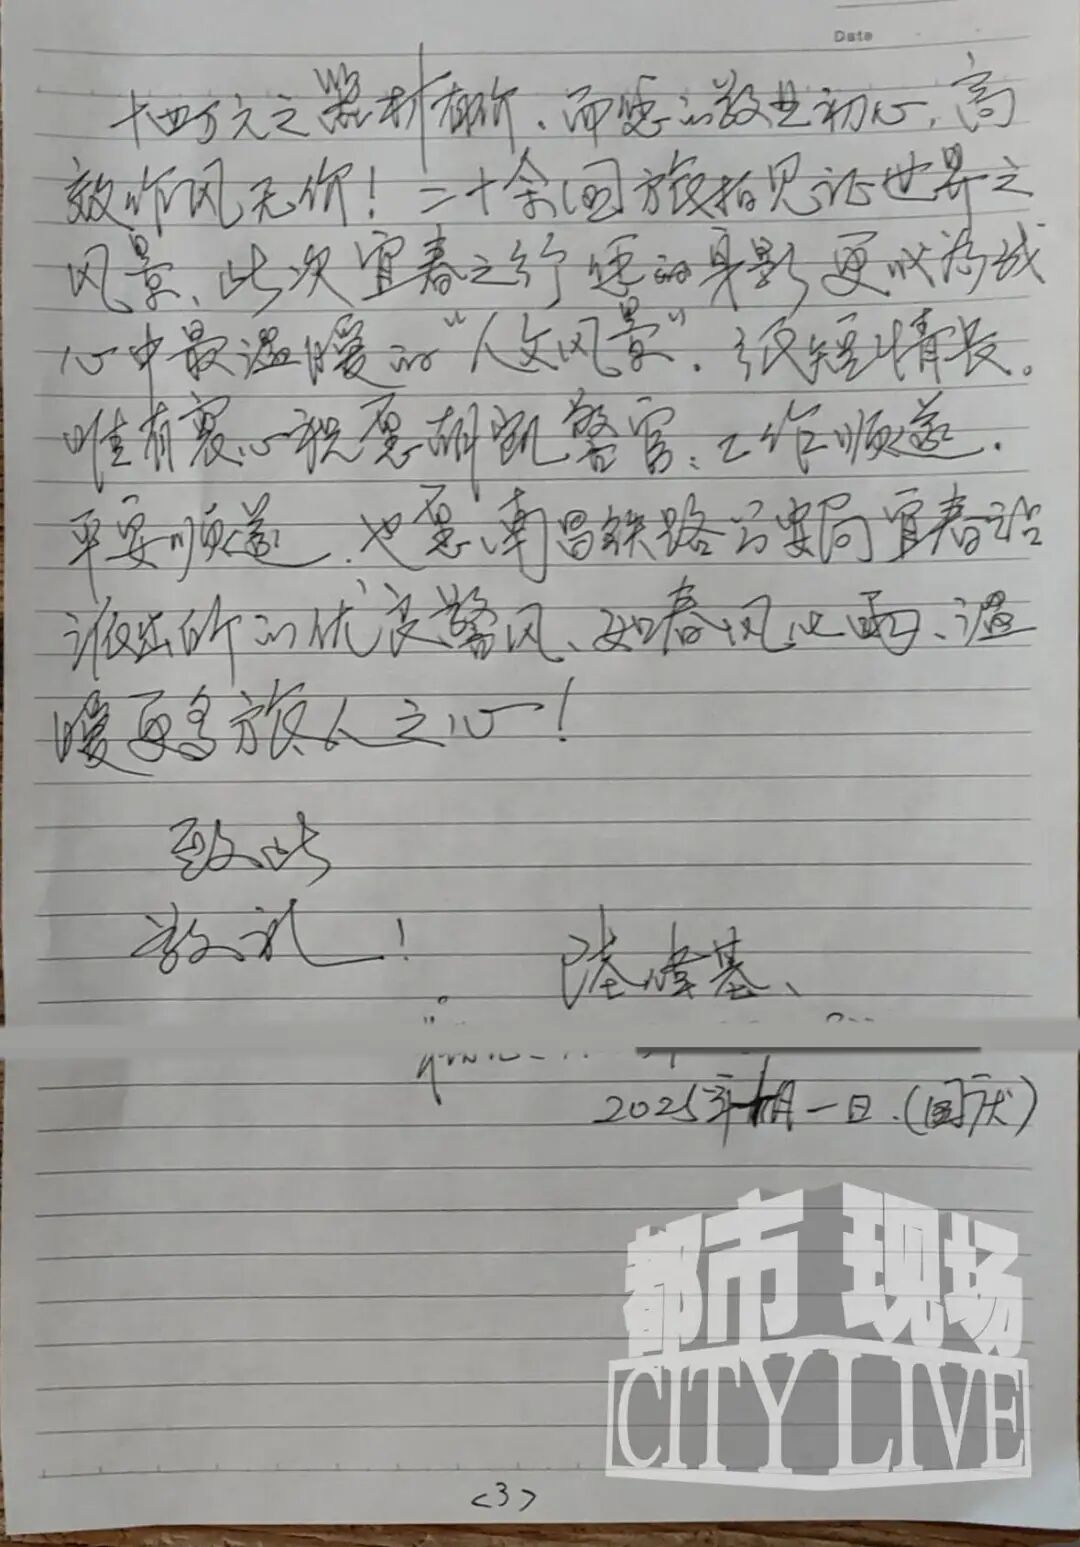 Date
十四万元之器材有价、而您的敬业初心,高
效作风无价!二十余国旅拍见证世界之
风景、此次宜春之行您的身影更成为我
心中最温暖的“人文风景”.纸短情长。
唯有衷心祝愿胡凯警官:工作顺遂.
平安顺遂.也愿南昌铁路公安局宜春站
派出所的优良警风、如春风化雨、温
暖更多旅人之心!
致此
敬礼!
陆峰基、
2025年十月一日.(国庆)
都市现场
CITY LIVE
<3>